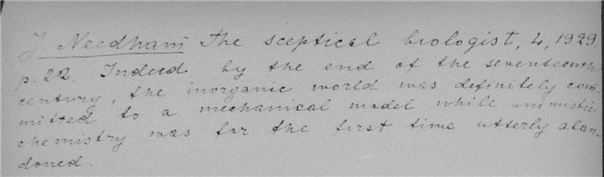 J. Needham The sceptical biologist, 4, 1929.
p. 22. Indeed by the end of the seventeenth
century, the inorganic world was definitely com-
mitted to a mechanical model while animistic
chemistry was for the first time utterly aban-
doned.